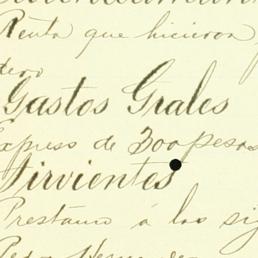 Renta que hicieron
tero
Gastos Grales
Express de 300 pesos
Sirvientes
Prestamo á los sig